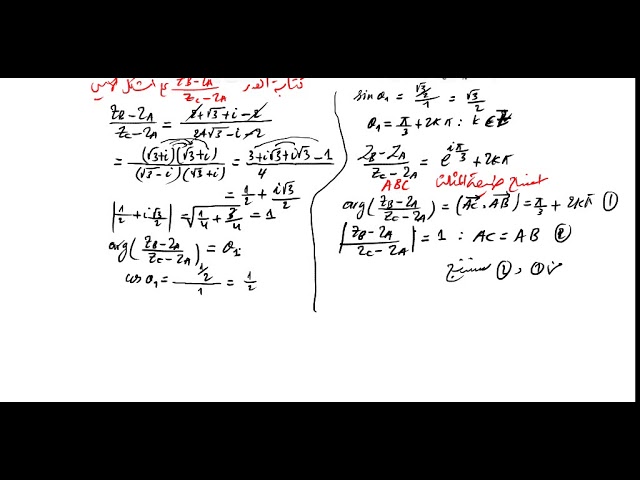 كتابة العدد (z_B − z_A)/(z_C − z_A) ع الشكل الأسي
(z_B − z_A)/(z_C − z_A) = (2+√3+i−2)/(2+√3−i−2)
= (√3+i)(√3+i)/(√3−i)(√3+i) = (3+i√3+i√3−1)/4
= 1/2 + i√3/2
|1/2 + i√3/2| = √(1/4 + 3/4) = 1
arg((z_B − z_A)/(z_C − z_A)) = θ₁
cos θ₁ = (1/2)/1 = 1/2
sin θ₁ = (√3/2)/1 = √3/2
θ₁ = π/3 + 2kπ : k ∈ Z
(z_B − z_A)/(z_C − z_A) = e^{iπ/3} + 2kπ
استنتاج طبيعة المثلث ABC
arg((z_B − z_A)/(z_C − z_A)) = (AC⃗ . AB⃗) = π/3 + 2kπ ①
|(z_B − z_A)/(z_C − z_A)| = 1 : AC = AB ②
من ① و ② نستنتج